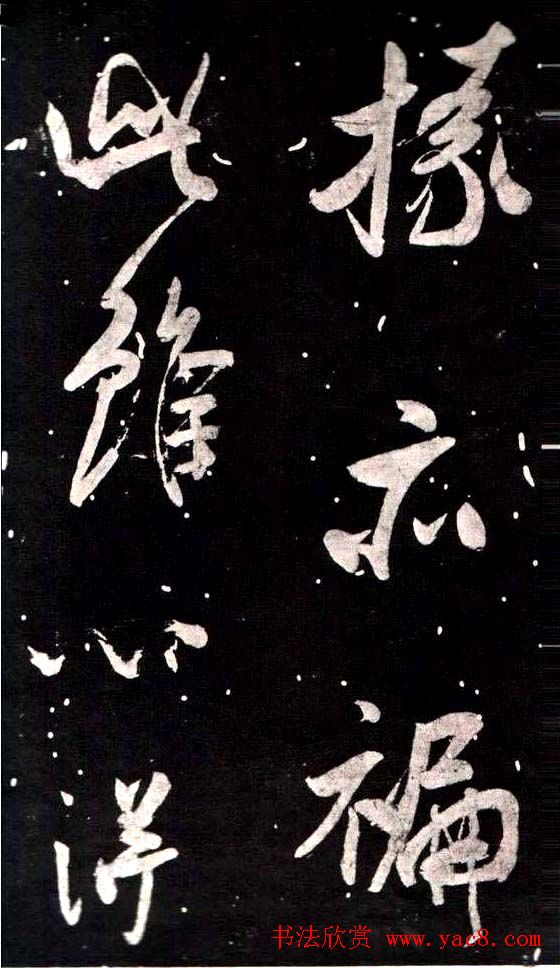 掾亦褊
此雖心得
书法欣赏 www.yac8.com